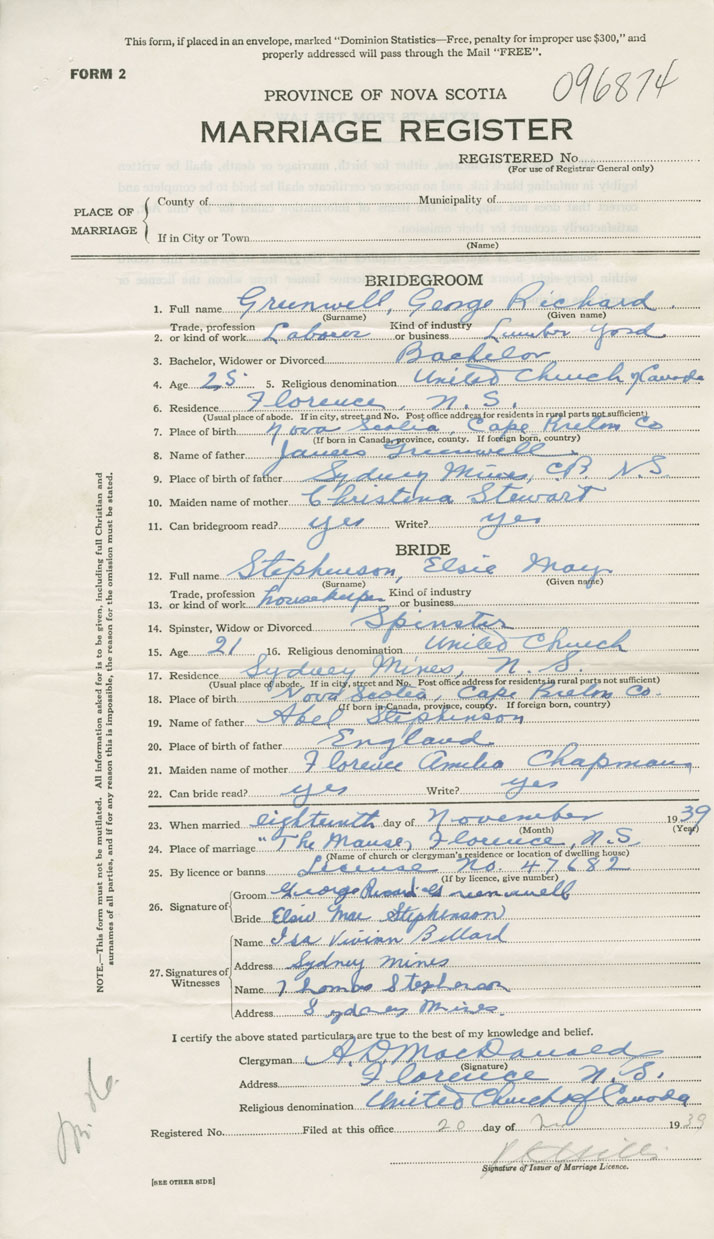 This form, if placed in an envelope, marked "Dominion Statistics—Free, penalty for improper use $300," and
properly addressed will pass through the Mail "FREE".
FORM 2
096874
PROVINCE OF NOVA SCOTIA
MARRIAGE REGISTER
REGISTERED No.
(For use of Registrar General only)
PLACE OF MARRIAGE
County of Municipality of
If in City or Town
(Name)
BRIDEGROOM
1. Full name Greenwell, George Richard
(Surname) (Given name)
Trade, profession Kind of industry
2. or kind of work Laborer or business Lumber Yard
3. Bachelor, Widower or Divorced Bachelor
4. Age 25 5. Religious denomination United Church of Canada
6. Residence Florence, N.S.
(Usual place of abode. If in city, street and No. Post office address for residents in rural parts not sufficient)
7. Place of birth Nova Scotia, Cape Breton Co
(If born in Canada, province, county. If foreign born, country)
8. Name of father James Greenwell
9. Place of birth of father Sydney Mines, C.B. N.S.
10. Maiden name of mother Christena Stewart
11. Can bridegroom read? yes Write? yes
BRIDE
12. Full name Stephenson, Elsie May
(Surname) (Given name)
Trade, profession Kind of industry
13. or kind of work housekeeper or business
14. Spinster, Widow or Divorced Spinster
15. Age 21 16. Religious denomination United Church
17. Residence Sydney Mines, N.S.
(Usual place of abode. If in city, street and No. Post office address for residents in rural parts not sufficient)
18. Place of birth Nova Scotia, Cape Breton Co.
(If born in Canada, province, county. If foreign born, country)
19. Name of father Abel Stephenson
20. Place of birth of father England
21. Maiden name of mother Florence Amelia Chapman
22. Can bride read? yes Write? yes
23. When married eighteenth day of November 1939
(Month) (Year)
24. Place of marriage "The Manse, Florence, N.S
(Name of church or clergyman's residence or location of dwelling house)
25. By licence or banns License No. 47682
(If by licence, give number)
26. Signature of
Groom George Richard Greenwell
Bride Elsie Mae Stephenson
27. Signatures of Witnesses
Name Isa Vivian Billard
Address Sydney Mines
Name Thomas Stephenson
Address Sydney Mines.
I certify the above stated particulars are true to the best of my knowledge and belief.
Clergyman A. D. MacDonald
(Signature)
Address Florence N.S.
Religious denomination United Church of Canada
Registered No. Filed at this office 20 day of 1939
Signature of Issuer of Marriage Licence.
[SEE OTHER SIDE]
NOTE.—This form must not be mutilated. All information asked for is to be given, including full Christian and
surnames of all parties, and if for any reason this is impossible, the reason for the omission must be stated.